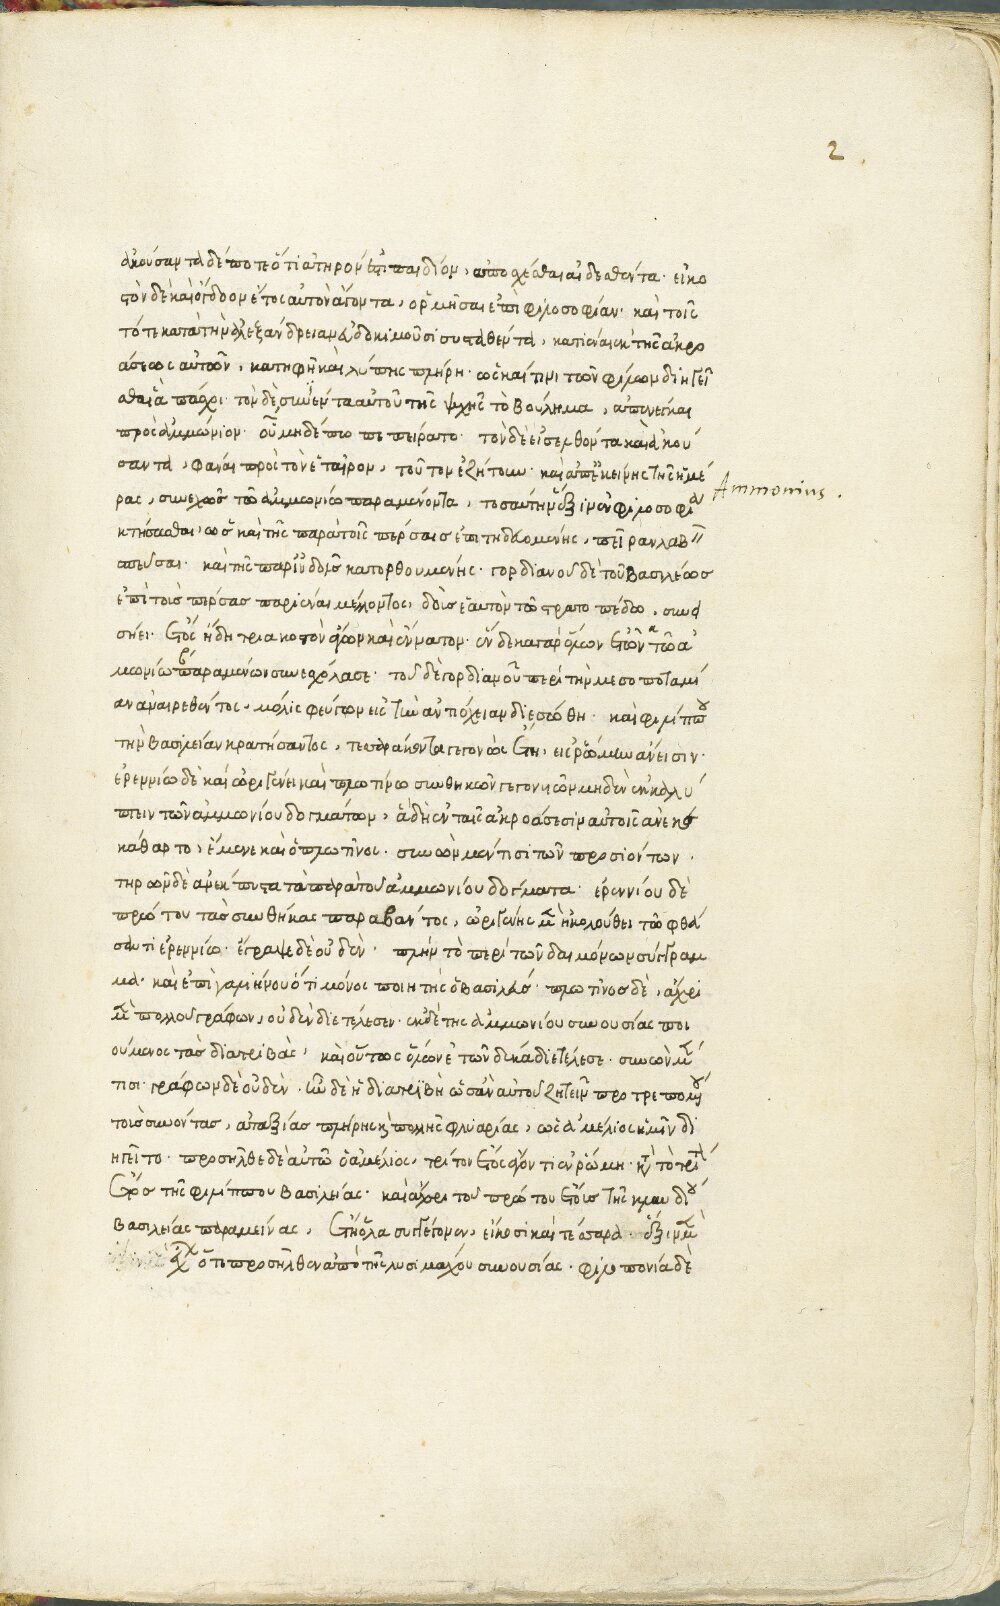 2
ἀκούσαντα δέ ποτε ὅτι ἀτηρόν ἐστι παιδίον, ἀποσχέσθαι αἰδεσθέντα. εἰκο
στὸν δὲ καὶ ὄγδοον ἔτος αὐτὸν ἄγοντα, ὁρμῆσαι ἐπὶ φιλοσοφίαν. καὶ τοῖς
τότε κατὰ τὴν ἀλεξάνδρειαν εὐδοκιμοῦσι συσταθέντα, κατιέναι ἐκ τῆς ἀκρο
άσεως αὐτῶν, κατηφῆ καὶ λύπης πλήρη. ὡς καί τινι τῶν φίλων διηγεῖ
σθαι ἃ πάσχοι. τὸν δὲ, συνέντα αὐτοῦ τῆς ψυχῆς τὸ βούλημα, ἀπενεῖκαι
πρὸς ἀμμώνιον. οὗ μηδέπω πεπείρατο. τὸν δὲ εἰσελθόντα καὶ ἀκού
σαντα, φάναι πρὸς τὸν ἑταῖρον, τοῦτον ἐζήτουν. καὶ ἀπ' ἐκείνης τῆς ἡμέ
Ammonius.
ρας, συνεχῶς τῷ ἀμμωνίῳ παραμένοντα, τοσαύτην ἕξιν ἐν φιλοσοφίᾳ
κτήσασθαι, ὡς καὶ τῆς παρὰ τοῖς πέρσαις ἐπιτηδευομένης, πεῖραν λαβεῖν
σπεῦσαι. καὶ τῆς παρ' ἰνδοῖς κατορθουμένης. γορδιανοῦ δὲ τοῦ βασιλέως
ἐπὶ τοὺς πέρσας παριέναι μέλλοντος, δοὺς ἑαυτὸν τῷ στρατοπέδῳ, συνει
σῄει. ἔτος ἤδη τριακοστὸν ἄγων καὶ ἔννατον. ἕνδεκα γὰρ ὅλων ἐτῶν τῷ ἀμ
μωνίῳ παραμένων συνεσχόλασε. τοῦ δὲ γορδιανοῦ περὶ τὴν μεσοποταμί
αν ἀναιρεθέντος, μόλις φεύγων εἰς τὴν ἀντιόχειαν διεσώθη. καὶ φιλίππου
τὴν βασιλείαν κρατήσαντος, τεσσαράκοντα γεγονὼς ἔτη, εἰς ῥώμην ἄνεισιν.
ἐρεννίῳ δὲ καὶ ὠριγένει καὶ πλωτίνῳ συνθηκῶν γεγονυιῶν μηδὲν ἐκκαλύ
πτειν τῶν ἀμμωνίου δογμάτων, ἃ δὴ ἐν ταῖς ἀκροάσεσιν αὐτοῖς ἀνεκε
κάθαρτο, ἔμενε καὶ ὁ πλωτῖνος. συνὼν μέν τισι τῶν προσιόντων.
τηρῶν δὲ ἀνέκπυστα τὰ παρὰ τοῦ ἀμμωνίου δόγματα. ἐρεννίου δὲ
πρώτου τὰς συνθήκας παραβάντος, ὠριγένης μὲν ἠκολούθει τῷ φθά
σαντι ἐρεννίῳ. ἔγραψε δὲ οὐδὲν. πλὴν τὸ περὶ τῶν δαιμόνων σύγγραμ
μα. καὶ ἐπὶ γαλιήνου ὅτι μόνος ποιητὴς ὁ βασιλεύς. πλωτῖνος δὲ, ἄχρι
μὲν πολλοῦ γράφων, οὐδὲν διετέλεσεν. ἐκ δὲ τῆς ἀμμωνίου συνουσίας ποι
ούμενος τὰς διατριβὰς, καὶ οὕτως ὅλων ἐτῶν δέκα διετέλεσε. συνὼν μέν
τισι. γράφων δὲ οὐδὲν. ἦν δὲ ἡ διατριβὴ ὡς ἂν αὐτοῦ ζητεῖν προτρεπομένου
τοὺς συνόντας, ἀταξίας πλήρης καὶ πολλῆς φλυαρίας, ὡς ἀμέλιος ἡμῖν δι
ηγεῖτο. προσῆλθε δὲ αὐτῷ ὁ ἀμέλιος, τρίτον ἔτος ἄγοντι ἐν ῥώμῃ. κατὰ τὸ τρί
τον ἔτος τῆς φιλίππου βασιλείας. καὶ ἄχρι τοῦ πρώτου ἔτους τῆς κλαυδίου
βασιλείας παραμείνας, ἔτη ὅλα συγγέγονεν, εἴκοσι καὶ τέσσαρα. ἕξιν μὲν
ἔχων ὅτε προσῆλθεν ἀπὸ τῆς λυσιμάχου συνουσίας. φιλοπονίᾳ δὲ